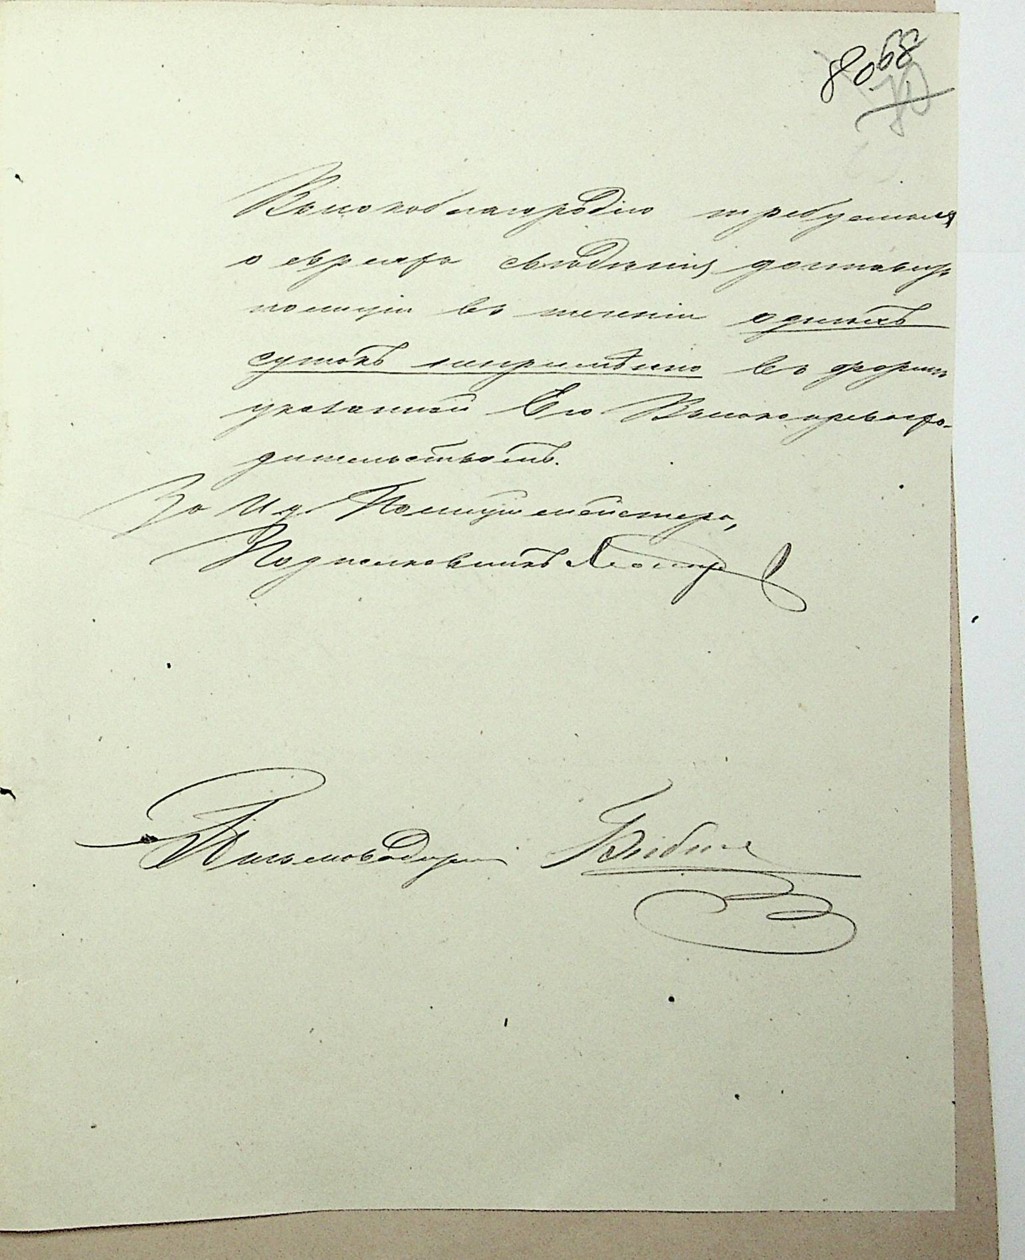 80 68
70
Высокоблагородію требуемыя
о евреяхъ свѣдѣнія доставить
полиціи въ теченіи однихъ
сутокъ непремѣнно въ формѣ
указанной Его Высокопревосхо-
дительствомъ.
За И. д. Полиціймейстера,
Подполковникъ
Письмоводитель